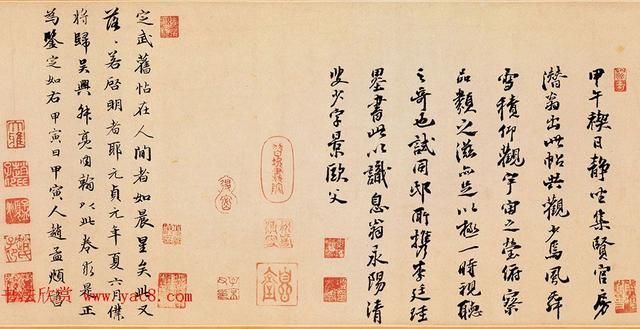 甲午稧日静坐集賢官房
濳翁出此帖共觀少焉風舞
雪積仰觀宇宙之瑩俯察
品類之滋亦足以極一時視聽
之奇也試同邸所携李廷珪
墨書此以識息翁永陽清
叟少字景歐父
定武舊帖在人間者如晨星矣此又
落〻若啓明者耶元貞元年夏六月僕
將歸吴興叔亮内翰以此卷求是正
為鑒定如右甲寅日甲寅人趙孟頫書
书法欣赏 www.yac8.com